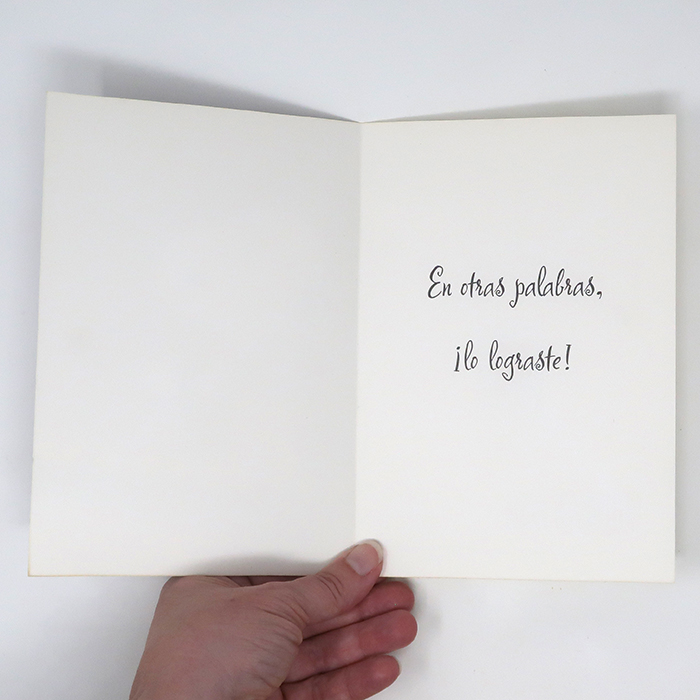 En otras palabras,
¡lo lograste!